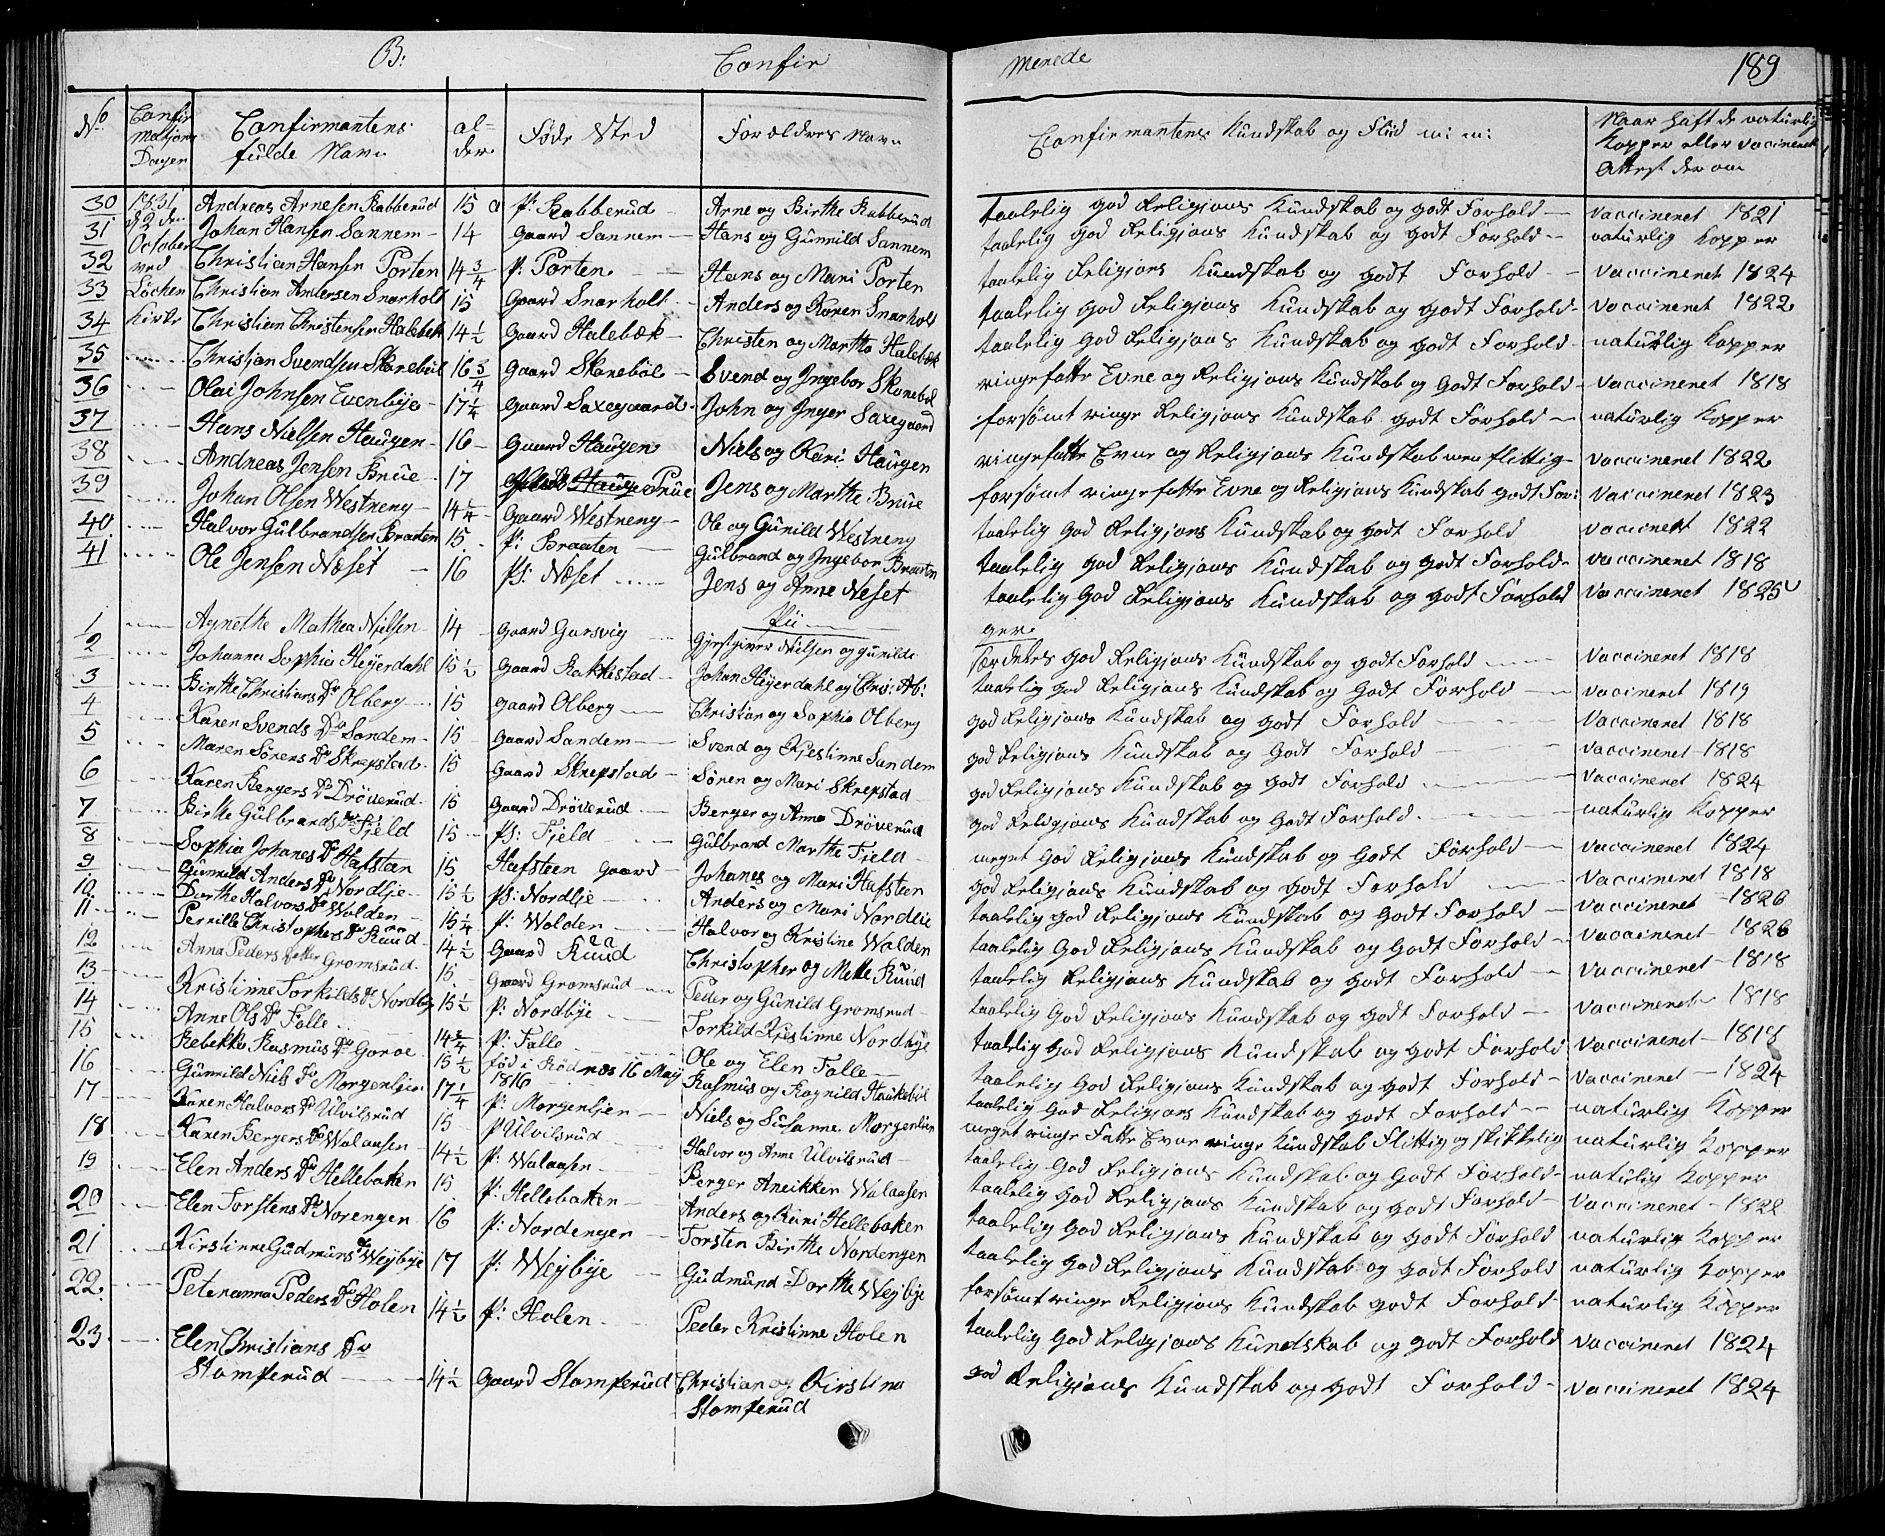 B: Confir menede 189
No Confir mations Dagen Confirmantens fulde Navn al- der Føde Sted Forældres Navn Confirmantens Kundskab og Flid m: m: Naar haft de naturlig Kopper eller vaccineret Attest derom
30 1831 Andreas Arnesen Kabberud 15 P: Kabberud Arne og Birthe Kabberud taalelig god Religions Kundskab og godt Forhold vaccineret 1821
31 d 2 den Johan Hansen Sannem 14 Gaard Sannem Hans og Gunnild Sannem taalelig god Religions Kundskab og godt Forhold naturlig Kopper
32 October ved Christian Hansen Porten 14 3/4 P: Porten Hans og Mari Porten taalelig Religions Kundskab og godt Forhold vaccineret 1824
33 Löchen Christian Andersen Snarholt 15 Gaard Snarholt Anders og Karen Snarholt taalelig god Religions Kundskab og godt Forhold vaccineret 1822
34 Kirke Christian Christensen Halebek 14 1/2 Gaard Halebæk Christen og Martha Halebæk taalelig god Religions Kundskab og godt Forhold naturlig Kopper
35 Christian Svendsen Skanebøl 16 3/4 Gaard Skanebøl Svend og Ingebor Skanebøl ringe fatte Evne og Religions Kundskab og godt Forhold vaccineret 1818
36 Olai Johnsen Evenbye 17 1/4 Gaard Saxegaard John og Inger Saxegaard forsømt ringe Religions Kundskab godt Forhold naturlig Kopper
37 Hans Nielsen Haugen 16 Gaard Haugen Niels og Kari Haugen ringe fatte Evne og Religions Kundskab men flittig vaccineret 1822
38 Andreas Jensen Brue 17 Haugen Brue Jens og Marthe Brue forsømt ringe fatte Evne og Religions Kundskab godt For: vaccineret 1823
39 Johan Olsen Westreng 14 1/4 Gaard Westreng Ole og Gunild Westreng taalelig god Religions Kundskab og godt Forhold vaccineret 1822
40 Halvor Gulbrandsen Braaten 15 P: Braaten Gulbrand og Ingebor Braaten taalelig god Religions Kundskab og godt Forhold vaccineret 1818
41 Ole Jensen Næset 16 Ps: Næset Jens og Anne Neset taalelig god Religions Kundskab og godt Forhold vaccineret 1825
Pii ger
1 Agnethe Mathea Nielsen 14 Gaard Garsvig Gjestgiver Nielsen og Gunilde særdeles god Religions Kundskab og godt Forhold vaccineret 1818
2 Johanna Sophia Heyerdahl 15 1/2 Gaard Rakkestad Johan Heyerdahl og Chri: Ab: taalelig god Religions Kundskab og Godt Forhold vaccineret 1819
3 Birthe Christians Dr Olberg 15 Gaard Olberg Christian og Sophia Olberg god Religions Kundskab og godt Forhold vaccineret 1818
4 Karen Svends Dr Sandem 15 Gaard Sandem Svend og Kjestinne Sandem god Religions Kundskab og Godt Forhold vaccineret 1818
5 Maren Sörens Dr Skrepstad 15 Gaard Skrepstad Sören og Mari Skrepstad god Religions Kundskab og godt Forhold vaccineret 1824
6 Karen Bergers Dr Dröverud 15 Gaard Dröverud Berger og Anna Dröverud god Religions Kundskab og Godt Forhold naturlig Kopper
7 Birthe Gulbrands Dr Fjeld 15 Ps: Fjeld Gulbrand Marthe Fjeld meget god Religions Kundskab og Godt Forhold vaccineret 1824
8 Sophia Johanes Dr Hafsteen 15 Hafsteen Gaard Johanes og Mari Hafsten god Religions Kundskab og godt Forhold vaccineret 1818
9 Gunnild Anders Dr Nordlie 15 1/2 Ps: Nordlie Anders og Mari Nordlie taalelig god Religions Kundskab og Godt Forhold vaccineret 1826
10 Dorthe Halvors Dr Wolden 15 1/4 P: Wolden Halvor og Kristine Wolden taalelig God Religions Kundskab og Godt Forhold vaccineret 1826
11 Pernille Christophers Dr Ruud 14 1/2 Gaard Ruud Christopher og Mette Ruud taalelig Religions Kundskab og godt Forhold vaccineret 1818
12 Anna Peders Datter Gromsrud 15 Gaard Gromsrud Peder og Gunild Gromsrud taalelig God Religions Kundskab og godt Forhold vaccineret 1818
13 Kristinne Torkilds Dr Nordby 15 1/2 P: Nordbye Torkild Kristinne Nordbye taalelig God Religions Kundskab og godt Forhold vaccineret 1818
14 Anne Ols Dr Falle 14 3/4 P: Falle Ole og Elen Falle taalelig God Religions Kundskab og godt Forhold vaccineret 1824
15 Rebekka Rasmus Dr 15 1/2 fød i Rødnæs 16 May 1816 Rasmus og Ragnild Haukebøl taalelig God Religions Kundskab og godt Forhold naturlig Kopper
16 Gunnild Niels Dr Morgenlien 17 1/4 P: Morgenlien Niels og Susanne Morgenlien meget ringe Fatte Evne ringe Kundskab Flittig og skikkelig naturlig Kopper
17 Karen Halvors Dr Ulvilsrud 15 P Ulvilsrud Halvor og Anne Ulvilsrud taalelig God Religions Kundskab og Godt Forhold naturlig Kopper
18 Karen Bergers Dr Walaasen 14 1/2 P: Walaasen Berger Aneikken Walaasen taalelig God Religions Kundskab og godt Forhold vaccineret 1822
19 Elen Anders Dr Hellebakken 15 P: Hellebakken Anders og Kari Hellebakken taalelig God Religions Kundskab og godt Forhold naturlig Kopper
20 Elen Torstens Dr Norengen 16 P: Nordengen Torsten Birthe Nordengen taalelig God Religions Kundskab og godt Forhold naturlig Kopper
21 Kirstinne Gudmuns Dr Weybye 17 P: Weybye Gudmund Dorthe Weybye forsømt ringe Religions Kundskab godt Forhold naturlig Kopper
22 Peternanna Peders Dr Holen 14 1/2 P: Holen Peder Kristinne Holen taalelig God Religions Kundskab og godt Forhold vaccineret 1824
23 Elen Christians Dr
Stomperud 14 1/2 Gaard Stomperud Christian og Kirstina god Religions Kundskab og godt Forhold vaccineret 1824
Stomperud